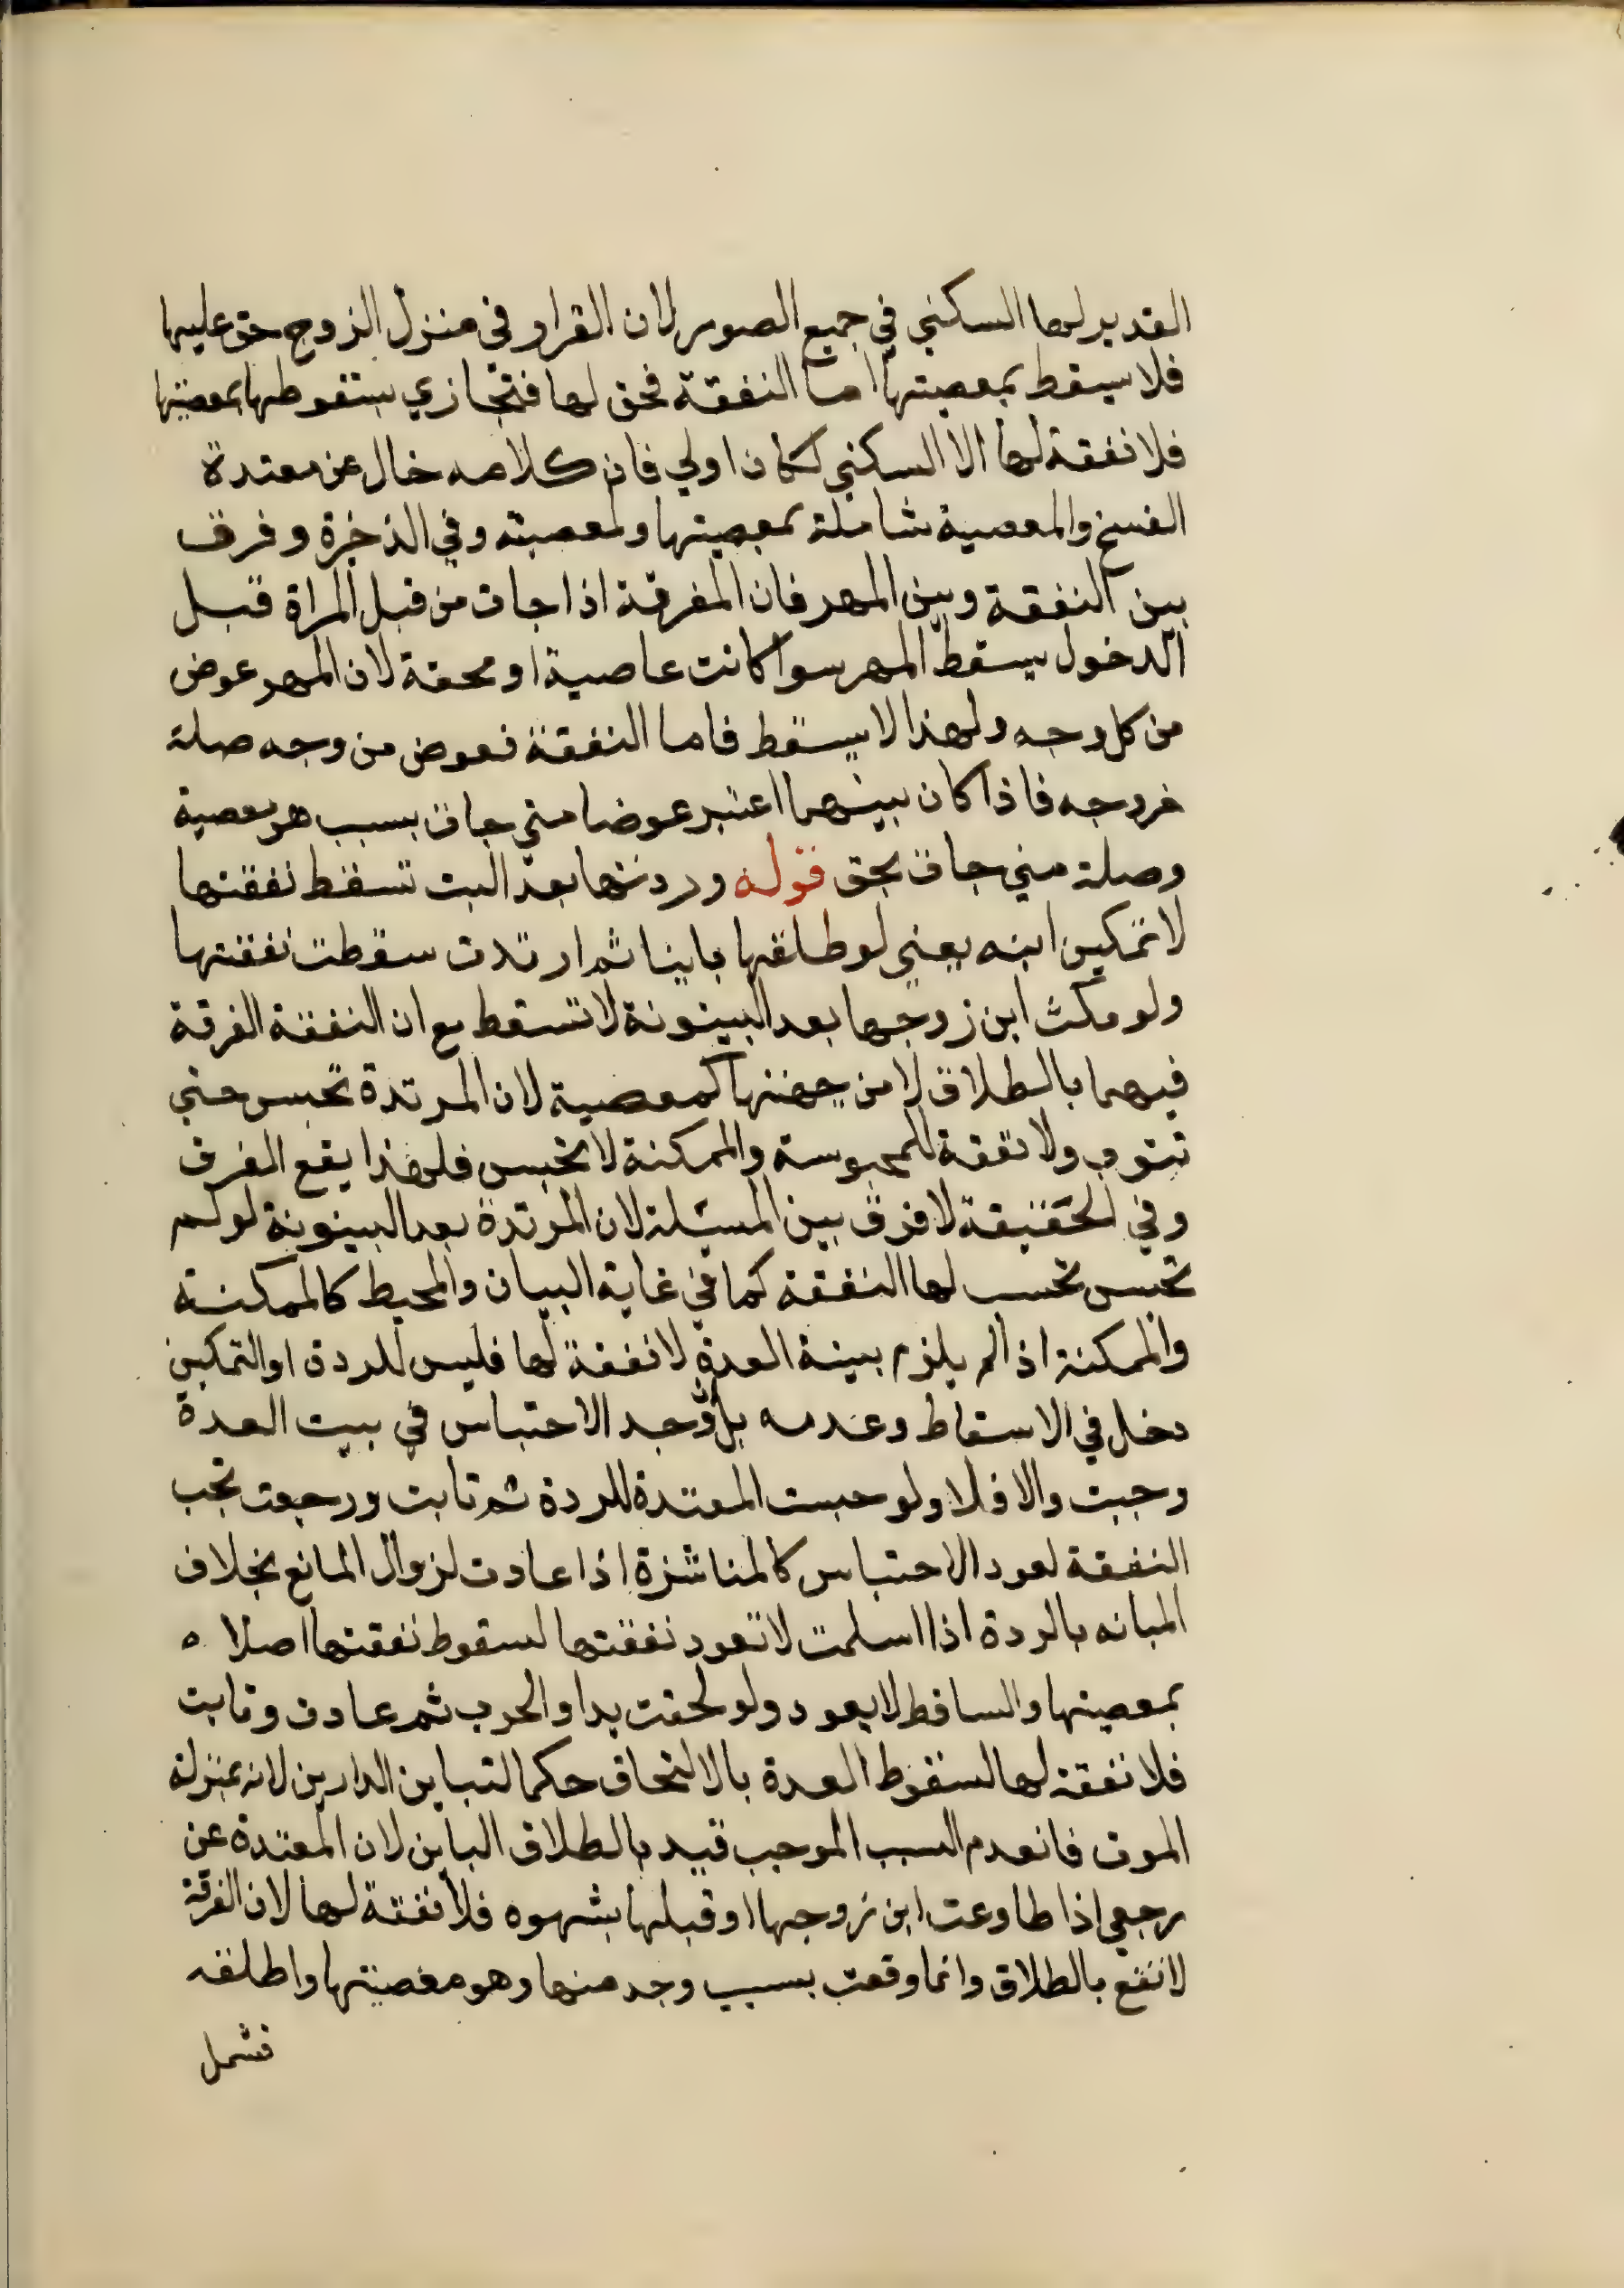 القدير لها السكني في جميع الصور لان القرار في منزل الزوج حق عليها
فلا سيقط بمعصيتها اما النفقة فحق لها فتجازي بسقوطها بمعصيتها
فلا نفقة لها الا السكني لكان اولي فان كلامه خال عن معتدة
الفسخ والمعصية شاملة بمعصيتها ولمعصيته وفي الذخرة وفرق
بين النفقة وبين المهر فان المفرقة اذا جات من قبل المراة قبل
الدخول يسقط المهر سوا كانت عاصية او محقة لان المهر عوض
من كل وجه ولهذا لا يسقط فاما النفقة فعوض من وجه صلة
من وجه فاذا كان بينهما اعتبر عوضا متي جات بسبب هو معصية
وصلة متي جات بحق قوله وردتها بعد البت تسقط نفقتها
لا تمكين ابنه يعني لو طلقها باينا ثم ارتدت سقطت نفقتها
ولو مكنت ابن زوجها بعد البينونة لا تسقط مع ان النفقة الفرقة
فيهما بالطلاق لا من جهتها كمعصية لان المرتدة تحبس حتي
تتوب ولا نفقة للمحبوسة والممكنة لا تحبس فلهذا يقع الفرق
وفي الحقيقة لا فرق بين المسيلة لان المرتدة بعد البينونة لو لم
تحبس تحسب لها النفقة كما في غاية البيان والمحيط كالممكنة
والممكنة اذا لم يلزم بيينة العدة لا نفقة لها فليس للردة او التمكين
دخل في الاسقاط وعدمه بل وجد الاحتباس في بيت العدة
وجبت والا فلا ولو حبست المعتدة للردة ثم تابت ورجعت تجب
النفقة لعود الاحتباس كالمناشزة اذا عادت لزوال المانع بخلاف
المبانه بالردة اذا اسلمت لا تعود نفقتها لسقوط نفقتها اصلا ه
بمعصيتها والساقط لا يعود ولو لحقت بدار الحرب ثم عادت وتابت
فلا نفقة لها لسقوط العدة بالالتحاق حكما لتباين الدارين لانه بمنزلة
الموت فانعدم السبب الموجب قيد بالطلاق الباين لان المعتدة عن
رجعي اذا طاوعت ابن زوجها او قبلها بشهوه فلا نفقة لها لان الفرقة
لا تقع بالطلاق وانما وقعت بسبب وجد منها وهو معصيتها واطلقه
فشمل